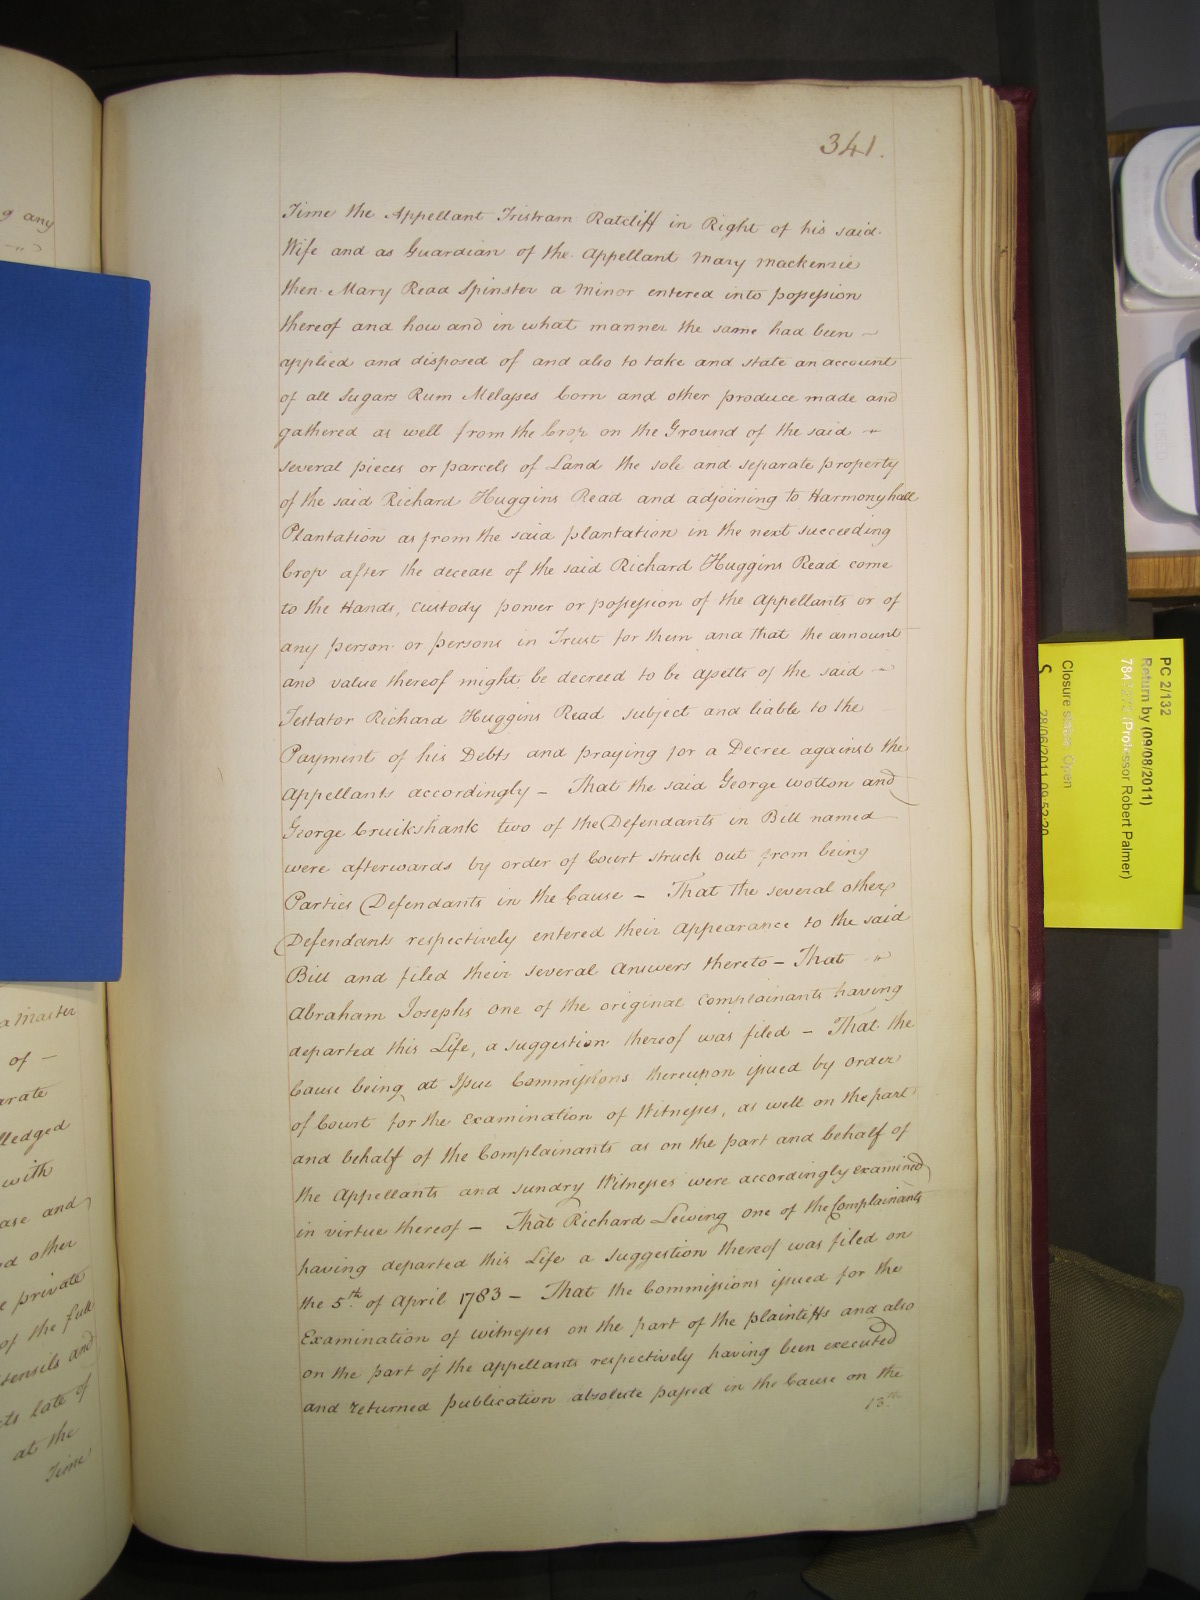 341.
Time the Appellant Tristram Ratcliff in Right of his said
Wife and as Guardian of the Appellant Mary Mackenzie
then Mary Read Spinster a Minor entered into possession
thereof and how and in what manner the same had been
applied and disposed of and also to take and state an account
of all Sugars Rum Melasses Corn and other produce made and
gathered as well from the Crop on the Ground of the said
several pieces or parcels of Land the sole and separate property
of the said Richard Huggins Read and adjoining to Harmony hall
Plantation as from the said plantation in the next succeeding
Crop after the decease of the said Richard Huggins Read come
to the Hands, custody power or possession of the Appellants or of
any person or persons in Trust for them and that the amount
and value thereof might be decreed to be assetts of the said
Testator Richard Huggins Read subject and liable to the
Payment of his Debts and praying for a Decree against the
Appellants accordingly – That the said George Wotton and
George Cruikshank two of the Defendants in Bill named
were afterwards by order of Court struck out from being
Parties Defendants in the Cause – That the several other
Defendants respectively entered their Appearance to the said
Bill and filed their several Answers thereto – That
Abraham Josephs one of the original Complainants having
departed this Life, a suggestion thereof was filed – That the
Cause being at Issue Commissions thereupon issued by order
of Court for the Examination of Witnesses, as well on the part
and behalf of the Complainants as on the part and behalf of
the Appellants and sundry Witnesses were accordingly examined
in virtue thereof – That Richard Lewing one of the Complainants
having departed this Life a suggestion thereof was filed on
the 5th. of April 1783 – That the Commissions issued for the
Examination of witnesses on the part of the plaintiffs and also
on the part of the appellants respectively having been executed
and returned publication absolute passed in the Cause on the
13th
g any
a Master
of –
arate
lledged
with
ase and
d other
e private
of the full
tensils and
cts late of
at the
Time
PC 2/132
Return by (09/08/2011)
(Professor Robert Palmer)
Closure status: Open
S
28/06/2011 09:52:20